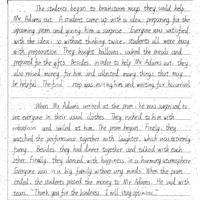 The students began to brainstorm ways they could help
Mr Adams out. A students came up with a idea: preparing for the
upcoming prom and giving him a surprise. Everyone was satisfied
with the idea, so without thinking twice, students all were busy
with preparation. They bought balloons, called the friends and
prepared for the gifts. Besides, in order to help Mr Adams out, they
also raised money for him and collected many things that may
be helpful. The final step was inviting him and waiting for his arrival.
When Mr Adams arrived at the prom, he was surprised to
see everyone in their usual clothes. They rushed to him with
and smiled at him. The prom began. Firstly, they
watched the performance together with laughter, which was extremely
funny. Besides, they had dinner together and talked with each
other. Finally, they danced with happiness, in a harmony atmosphere
Everyone was in a big family without any minds. When the prom
ended, the students passed the money to Mr Adams. He said with
tears, "Thank you for the kindness. I will stay optimistic."